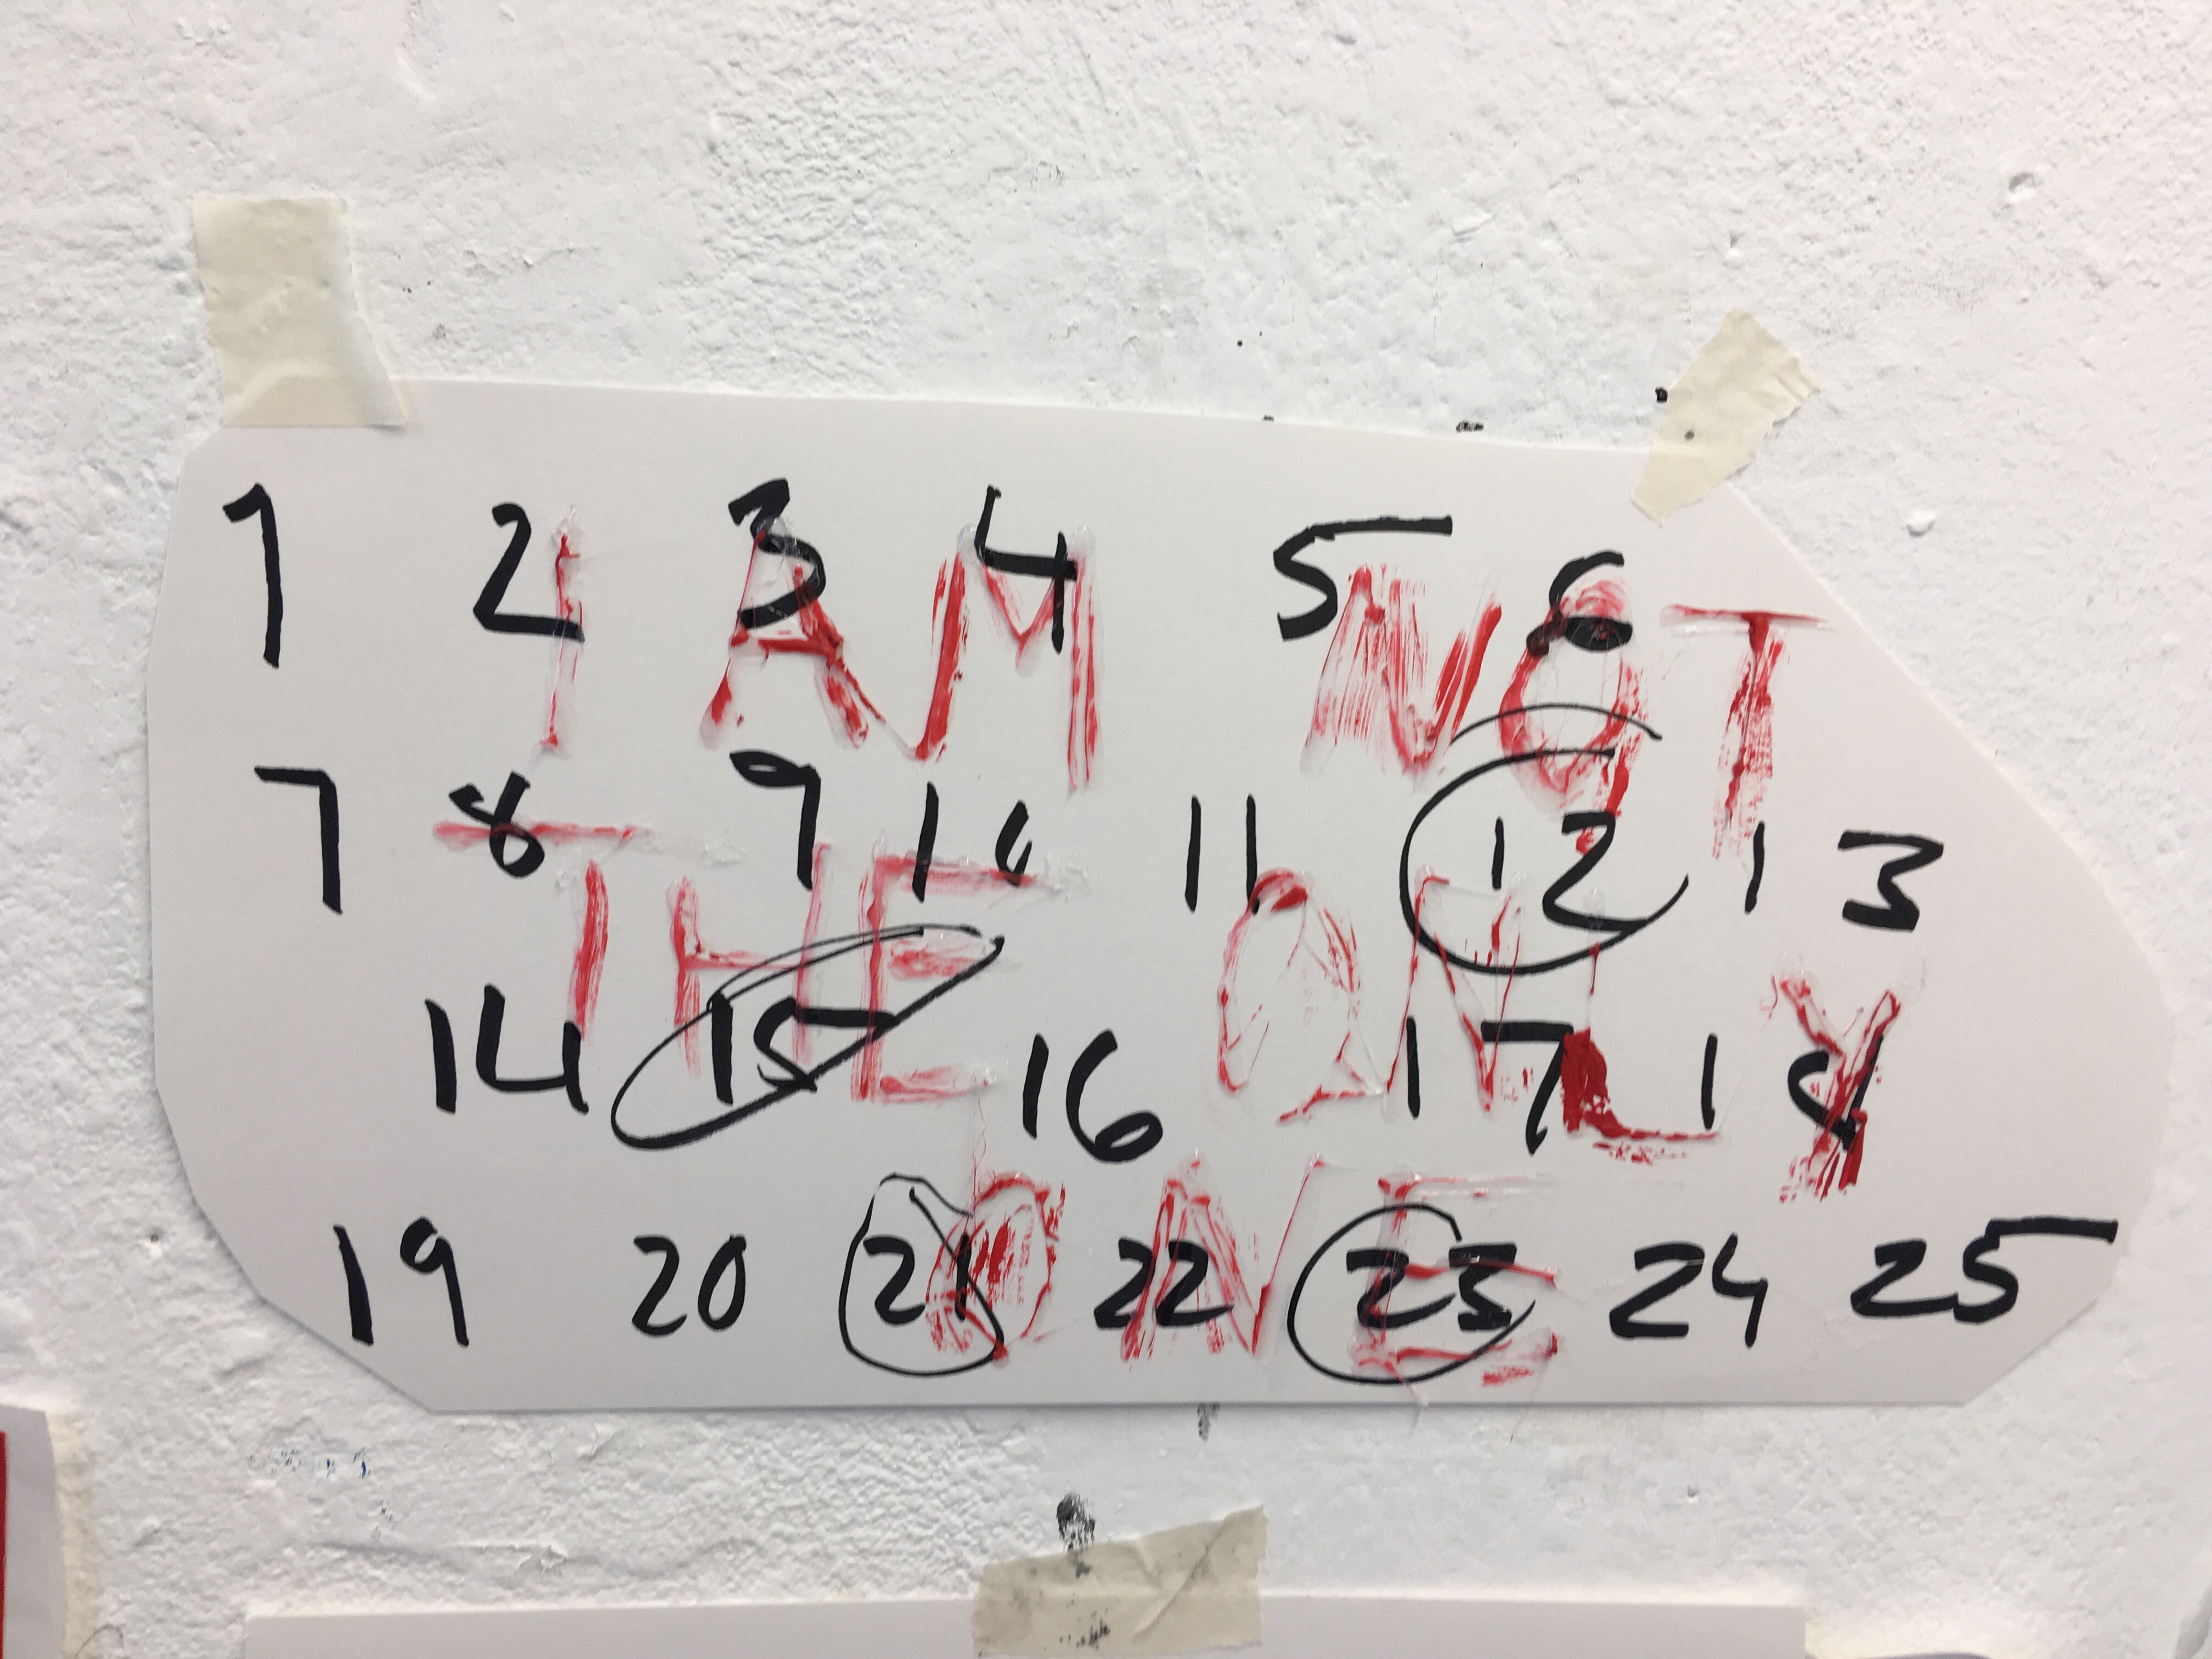 1 2 3 4 5 6
I AM NOT
7 8 9 10 11 12 13
THE ONLY
14 15 16 17 18
ONE
19 20 21 22 23 24 25